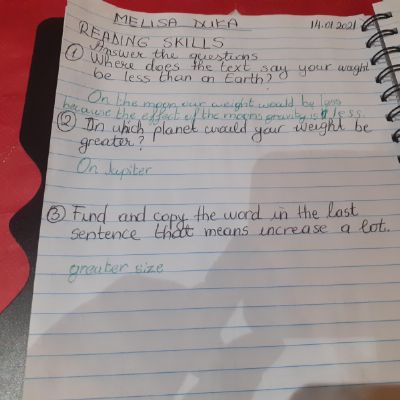 MELISA DUKA 14.01.2021
READING SKILLS
Answer the questions
① Where does the text say your waght
be less than on Earth?
On the moon our weight would be less
because the effect of the moons gravity is less.
② In which planet would your weight be
greater?
On Jupiter
③ Find and copy the word in the last
sentence that means increase a lot.
greater size